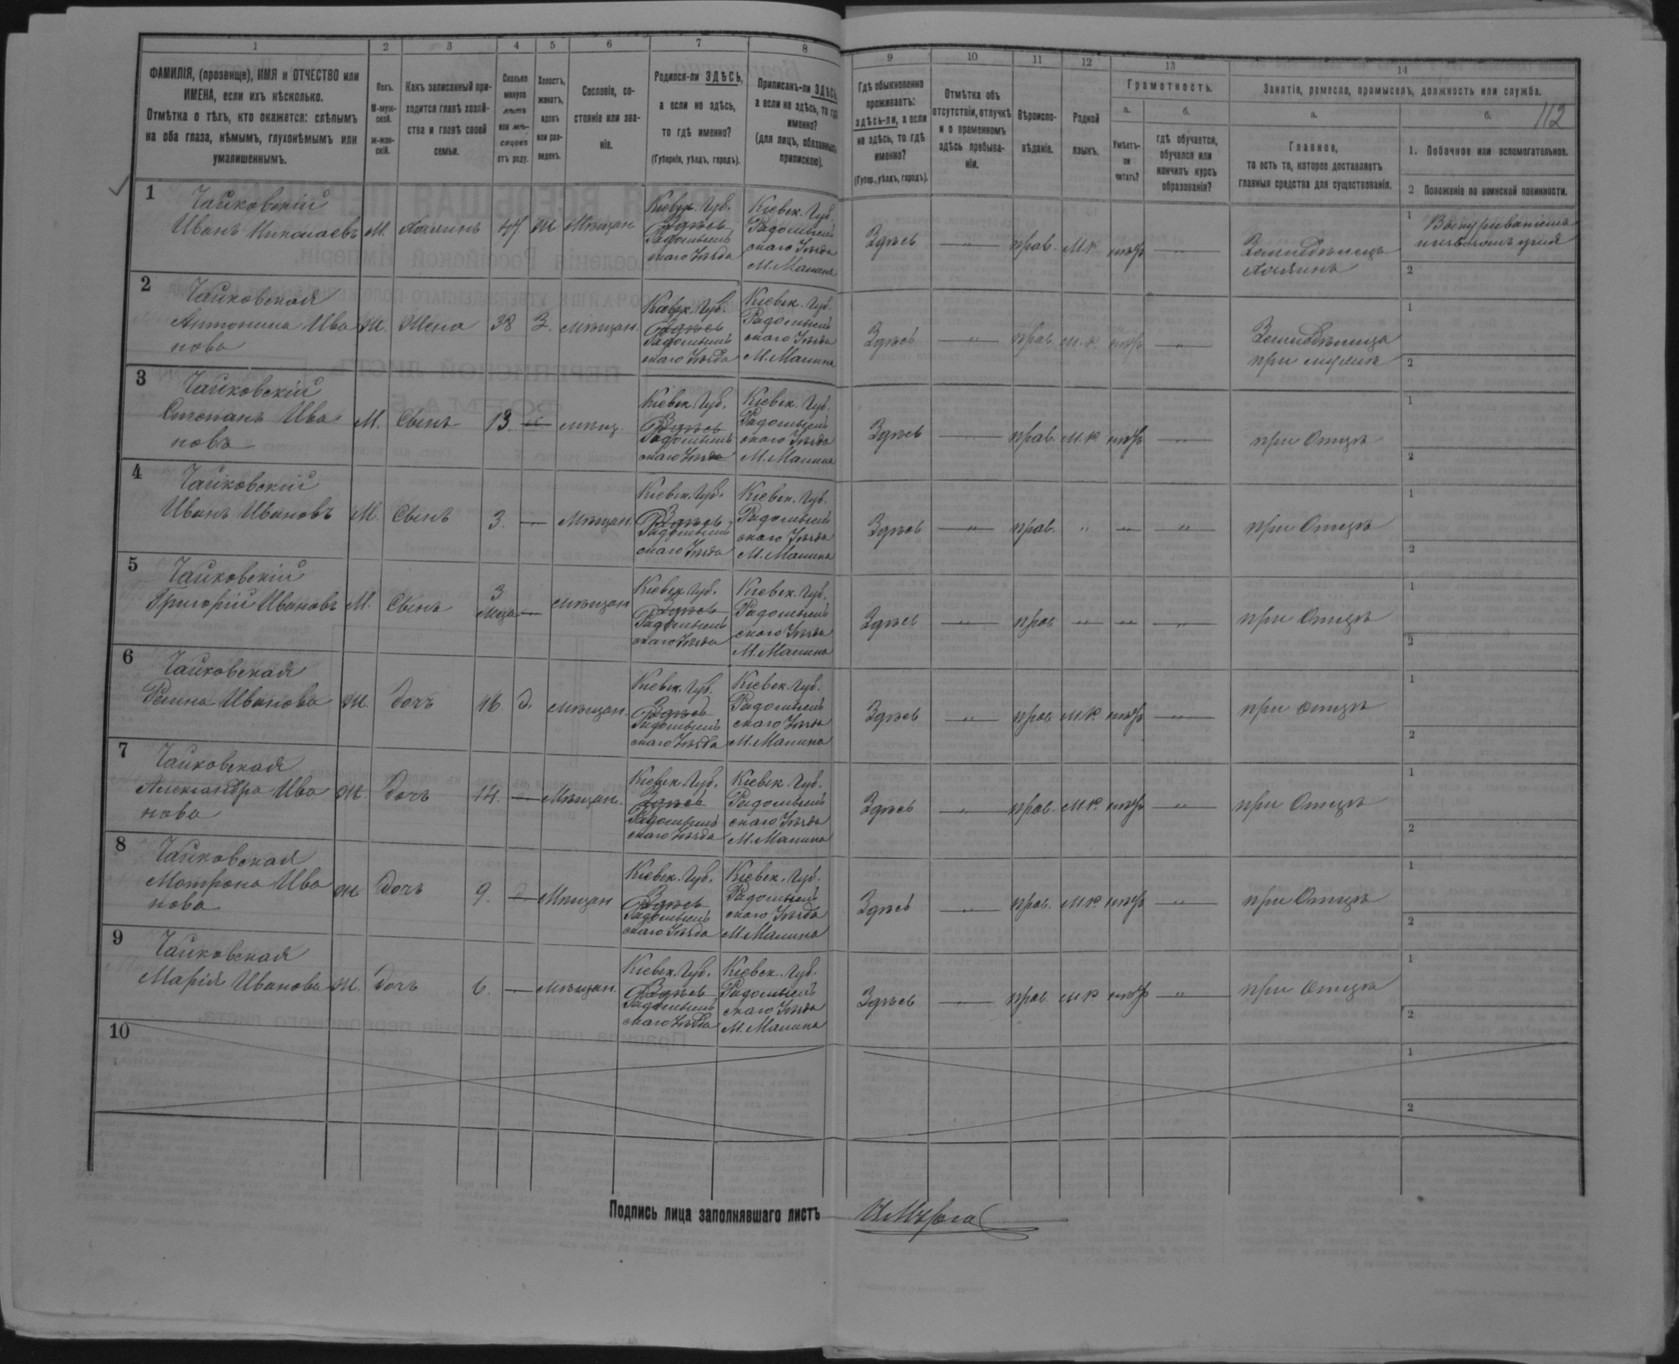 1 2 3 4 5 6 7 8 9 10 11 12 13 14
112
ФАМИЛІЯ, (прозвище), ИМЯ и ОТЧЕСТВО или
ИМЕНА, если ихъ нѣсколько.
Отмѣтка о тѣхъ, кто окажется: слѣпымъ
на оба глаза, нѣмымъ, глухонѣмымъ или
умалишеннымъ.
Полъ.
М-муж-
ской.
ж-жен-
скій.
Какъ записанный при-
ходится главѣ хозяй-
ства и главѣ своей
семьи.
Сколько
минуло
лѣтъ
или мѣ-
сяцевъ
отъ роду.
Холостъ,
женатъ,
вдовъ
или раз-
веденъ.
Сословіе, со-
стояніе или зва-
ніе.
Родился-ли ЗДѢСЬ,
а если не здѣсь,
то гдѣ именно?
(Губернія, уѣздъ, городъ).
Приписанъ-ли ЗДѢСЬ,
а если не здѣсь, то гдѣ
именно?
(для лицъ, обязанныхъ
припискою).
Гдѣ обыкновенно
проживаетъ:
здѣсь-ли, а если
не здѣсь, то гдѣ
именно?
(Губер., уѣздъ, городъ).
Отмѣтка объ
отсутствіи, отлучкѣ
и о временномъ
здѣсь пребыва-
ніи.
Вѣроиспо-
вѣданіе.
Родной
языкъ.
Грамотность.
а.
Умѣетъ-
ли
читать?
б.
гдѣ обучается,
обучался или
кончилъ курсъ
образованія?
Занятія, ремесла, промыселъ, должность или служба.
а.
Главное,
то есть то, которое доставляетъ
главныя средства для существованія.
б.
1. Побочное или вспомогательное.
2 Положеніе по воинской повинности.
1
Чайковскій
Иванъ Николаевъ М. Хозяинъ 47 ж Мѣщан
Кіевск. Губ.
Здѣсь
Радомысль
скаго Уѣзда
Кіевск. Губ.
Радомысль
скаго Уѣзда
М. Малина
Здѣсь прав. М.Р.
Земледѣлецъ
хозяинъ
1
2
2
Чайковская
Антонина Ива
нова
Ж. Жена 38 З. мѣщан.
Кіевск. Губ.
Здѣсь
Радомысль
скаго Уѣзда
Кіевск. Губ.
Радомысль
скаго Уѣзда
М. Малина
Здѣсь прав. м.р.
Земледѣлица
при мужѣ
1
2
3
Чайковскій
Степанъ Ива
новъ
М. Сынъ 13 мѣщ.
Кіевск. Губ.
Здѣсь
Радомысль
скаго Уѣзда
Кіевск. Губ.
Радомысль
скаго Уѣзда
М. Малина
Здѣсь прав. м.р. при Отцѣ
1
2
4
Чайковскій
Иванъ Ивановъ М. Сынъ 3. — Мѣщан.
Кіевск. Губ.
Здѣсь
Радомысль
скаго Уѣзда
Кіевск. Губ.
Радомысль
скаго Уѣзда
М. Малина
Здѣсь прав. при Отцѣ
1
2
5
Чайковскій
Григорій Ивановъ М. Сынъ 3 мѣщан
Кіевск. Губ.
Здѣсь
Радомысль
скаго Уѣзда
Кіевск. Губ.
Радомысль
скаго Уѣзда
М. Малина
Здѣсь прав при Отцѣ
1
2
6
Чайковская
Ивановa Ж. дочь 16 д. мѣщан.
Кіевск. Губ.
Здѣсь
Радомысль
скаго Уѣзда
Кіевск. Губ.
Радомысль
скаго Уѣзда
М. Малина
Здѣсь прав м.р при отцѣ
1
2
7
Чайковская
Александра Ива
нова
Ж. Дочь 14. — Мѣщан.
Кіевск. Губ.
Здѣсь
Радомысль
скаго Уѣзда
Кіевск. Губ.
Радомысль
скаго Уѣзда
М. Малина
Здѣсь прав. м.р. при Отцѣ
1
2
8
Чайковская
Мотрона Ива
нова
Ж. Дочь 9. — Мѣщан
Кіевск. Губ.
Здѣсь
Радомысль
скаго Уѣзда
Кіевск. Губ.
Радомысль
скаго Уѣзда
М. Малина
Здѣсь прав. м.р. при Отцѣ
1
2
9
Чайковская
Марія Иванова Ж. дочь 6. — мѣщан.
Кіевск. Губ.
Здѣсь
Радомысль
скаго Уѣзда
Кіевск. Губ.
Радомысль
скаго Уѣзда
М. Малина
Здѣсь прав м.р при отцѣ
1
2
10
1
2
Подпись лица заполнявшаго листъ